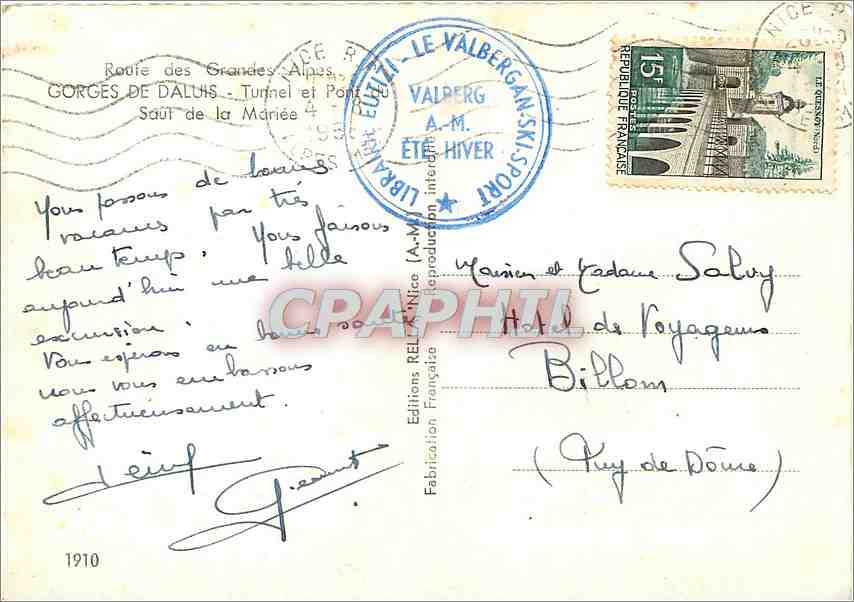 Route des Grandes Alpes
GORGES DE DALUIS - Tunnel et Pont du
Saut de la Mariée
NICE R
4
LIBRAIRIE EUUZI - LE VALBERGAN-SKI-SPORT
VALBERG
A.-M.
ÉTÉ HIVER
NICE R
15F
POSTES
REPUBLIQUE FRANÇAISE
LE QUESNOY (Nord)
Nous passons de bonnes
vacances par très
beau temps. Nous faisons
aujourd'hui une belle
excursion.
Vous espérons en bonne santé
nous vous embrassons
affectueusement.
1910
Editions RELLA, Nice (A.-M.)
Fabrication Française - Reproduction interdite
CPAPHIL
Monsieur et Madame Salvy
Hotel de Voyageurs
Billom
(Puy de Dôme)